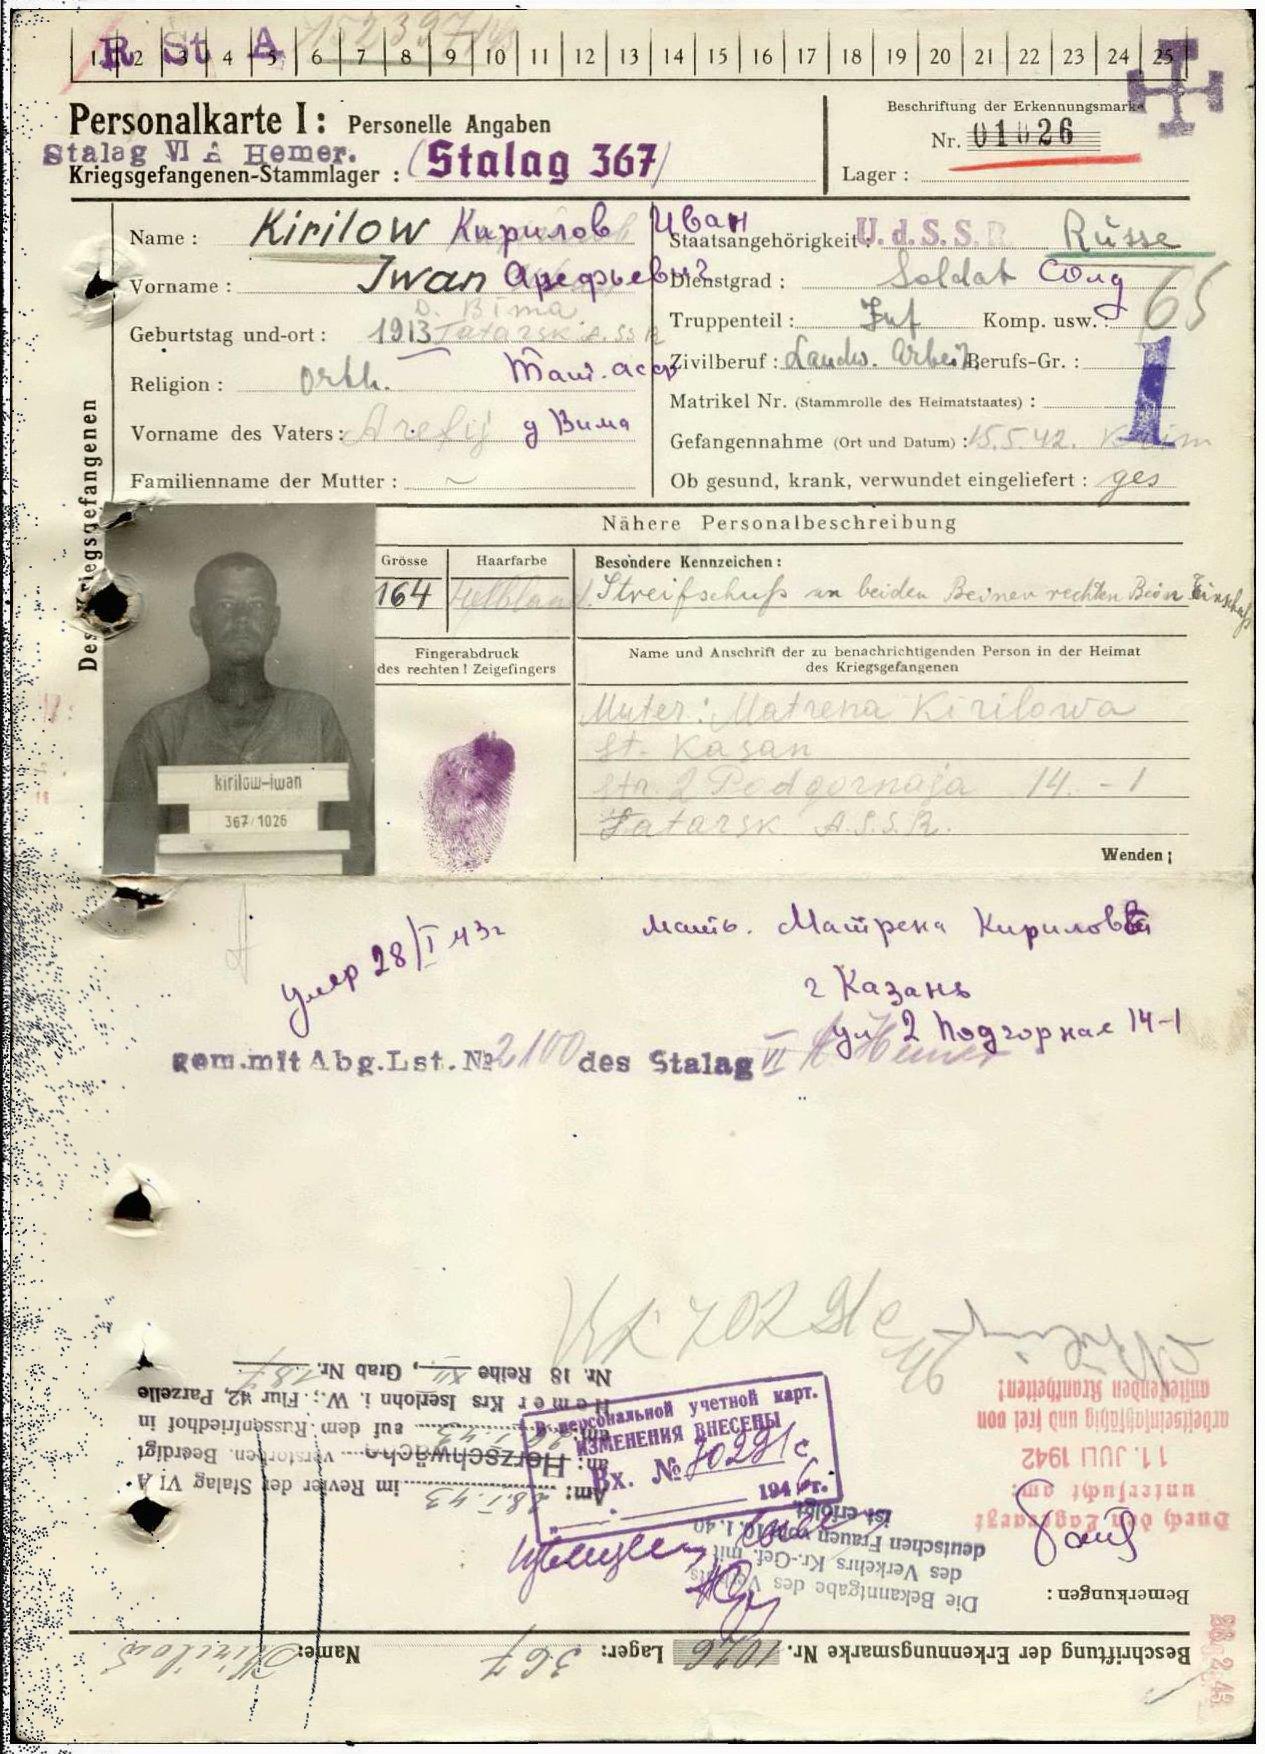 R St A 152397
1 2 3 4 5 6 7 8 9 10 11 12 13 14 15 16 17 18 19 20 21 22 23 24 25
Personalkarte I: Personelle Angaben
Beschriftung der Erkennungsmarke
Nr. 01026
Stalag VI A Hemer. (Stalag 367)
Kriegsgefangenen-Stammlager :
Lager :
Des Kriegsgefangenen
Name : Kirilow Кирилов Иван
Vorname : Iwan Арефьевич
D. Bima
Geburtstag und-ort : 1913 Tatarsk A.SSR
Religion : Orth. Тат. асср
Vorname des Vaters : Arefij д Вима
Familienname der Mutter : ~
Staatsangehörigkeit : U.d.S.S.R. Russe
Dienstgrad : Soldat Солд
65
Truppenteil : Inf Komp. usw. :
Zivilberuf : Landw. Arbeit Berufs-Gr. :
1
Matrikel Nr. (Stammrolle des Heimatstaates) :
Gefangennahme (Ort und Datum) : 15.5.42. Krim
Ob gesund, krank, verwundet eingeliefert : ges
Nähere Personalbeschreibung
Grösse
164
Haarfarbe
Besondere Kennzeichen :
Streifschuß an beiden Beinen rechten Bein Einschuß
kirilow-iwan
367/1026
Fingerabdruck
des rechten! Zeigefingers
Name und Anschrift der zu benachrichtigenden Person in der Heimat
des Kriegsgefangenen
Muter: Matrena Kirilowa
St. Kasan
Str. 2 Podgornaja 14 - 1
Tatarsk A.S.S.R.
Wenden!
умер 28/I 43г
мать. Матрена Кирилова
г Казань
ул 2 Подгорная 14-1
gem.mit Abg.Lst.№ 2100 des Stalag VI A Hemer
В персональной учетной карт.
ИЗМЕНЕНИЯ ВНЕСЕНЫ
Вх. № 70291с
194 г.
Beschriftung der Erkennungsmarke Nr. 1026 Lager: 367 Name: Kirilow
Bemerkungen:
Die Bekanntgabe des Verbots
des Verkehrs Kr.-Gef. mit
deutschen Frauen vom 10.1.40
ist erfolgt.
Durch den Lagerarzt
untersucht am:
11. JULI 1942
arbeitseinsatzfähig und frei von
ansteckenden Krankheiten
Am: 28.I.43 im Revier des Stalag VI A
an: Herzschwäche verstorben. Beerdigt
am: auf dem Russenfriedhof in
Hemer Krs Iserlohn i. W.; Flur 42, Parzelle
Nr. 18 Reihe XII, Grab Nr. 187